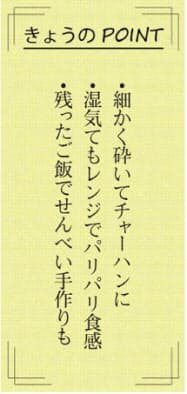 きょうのPOINT
・細かく砕いてチャーハンに
・湿気てもレンジでパリパリ食感
・残ったご飯でせんべい手作りも